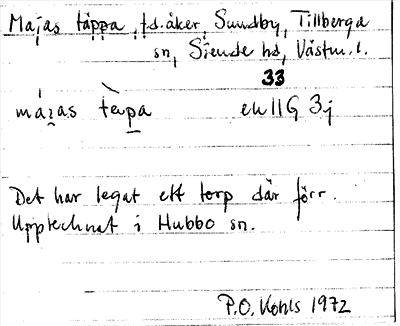 Majas täppa, f.d. åker, Sundby, Tillberga
sn, Siende hd, Västm. l.
33
ek 11G 3j
Det har legat ett torp där förr.
Upptecknat i Hubbo sn.
P.O. Kohls 1972